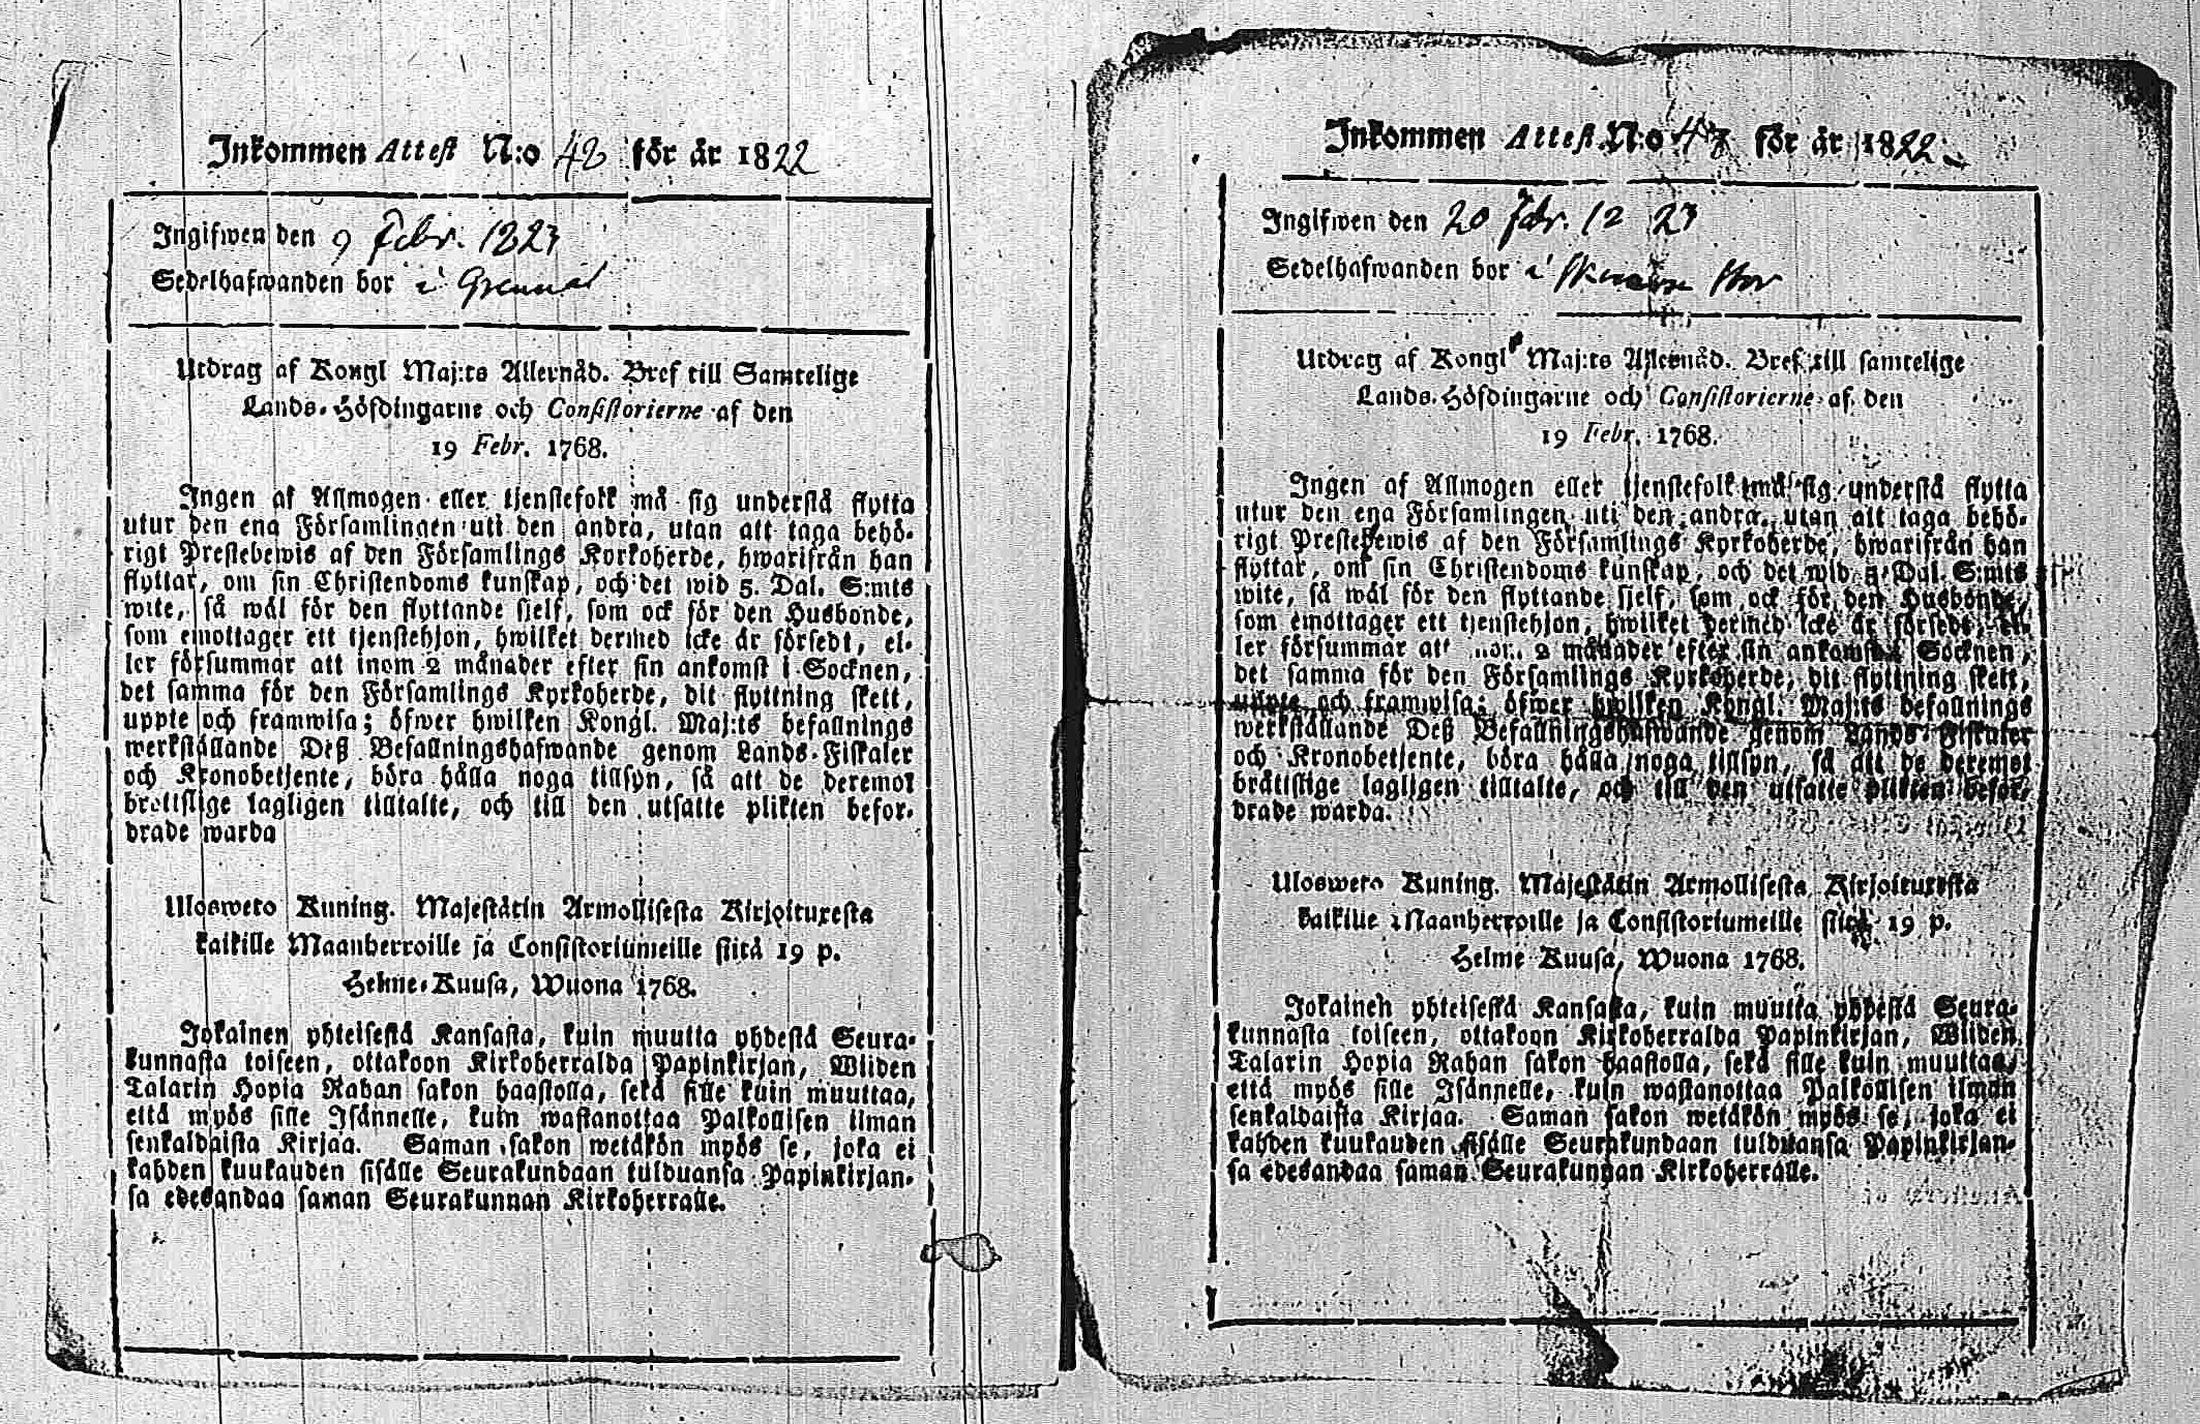 Inkommen Attest N:o 48 för år 1822
Ingifwen den 9 Febr. 1823
Sedelhafwanden bor i Grennäs
Utdrag af Kongl Maj:ts Allernåd. Bref till Samtelige
Lands-Höfdingarne och Consistorierne af den
19 Febr. 1768.
Ingen af Allmogen eller tjenstefolk må sig understå flytta
utur den ena Församlingen uti den andra, utan att taga behö-
rigt Prestebewis af den Församlings Kyrkoherde, hwarifrån han
flyttar, om sin Christendoms kunskap, och det wid 5. Dal. S:mts
wite, så wäl för den flyttande sjelf, som ock för den Husbonde,
som emottager ett tjenstehjon, hwilket dermed icke är försedt, el-
ler försummar att inom 2 månader efter sin ankomst i Socknen,
det samma för den Församlings Kyrkoherde, dit flyttning skett,
uppte och framwisa; öfwer hwilken Kongl. Maj:ts befallnings
werkställande Deß Befallningshafwande genom Lands-Fiskaler
och Kronobetjente, böra hålla noga tillsyn, så att de deremot
brottslige lagligen tilltalte, och till den utsatte plikten befor-
drade warda
Ulosweto Kuning. Majestätin Armollisesta Kirjoituxesta
kaikille Maanherroille ja Consistoriumeille siitä 19 p.
Helme-Kuusa, Wuona 1768.
Jokainen yhteisestä Kansasta, kuin muutta yhdestä Seura-
kunnasta toiseen, ottakoon Kirkoherralda Papinkirjan, Wiiden
Talarin Hopia Rahan sakon haastolla, sekä sille kuin muuttaa,
että myös sille Isännelle, kuin wastanottaa Palkollisen ilman
senkaldaista Kirjaa. Saman sakon wetäkön myös se, joka ei
kahden kuukauden sisälle Seurakundaan tulduansa Papinkirjan-
sa edesandaa saman Seurakunnan Kirkoherralle.
Inkommen Attest N:o 47 för år 1822
Ingifwen den 20 Febr. 1823
Sedelhafwanden bor i
Utdrag af Kongl Maj:ts Allernåd. Bref till samtelige
Lands-Höfdingarne och Consistorierne af den
19 Febr. 1768.
Ingen af Allmogen eller tjenstefolk må sig understå flytta
utur den ena Församlingen uti den andra, utan att taga behö-
rigt Prestebewis af den Församlings Kyrkoherde, hwarifrån han
flyttar, om sin Christendoms kunskap, och det wid 5 Dal. S:mts
wite, så wäl för den flyttande sjelf, som ock för den Husbonde,
som emottager ett tjenstehjon, hwilket dermed icke är försedt, el-
ler försummar att 2 månader efter sin ankomst i Socknen,
det samma för den Församlings Kyrkoherde, dit flyttning skett,
uppte och framwisa; öfwer hwilken Kongl. Maj:ts befallnings
werkställande Deß Befallningshafwande genom Lands-Fiskaler
och Kronobetjente, böra hålla noga tillsyn, så att de deremot
bråttslige lagligen tilltalte, och till den utsatte plikten befor-
drade warda.
Ulosweto Kuning. Majestätin Armollisesta Kirjoituxesta
kaikille Maanherroille ja Consistoriumeille siitä 19 p.
Helme-Kuusa, Wuona 1768.
Jokainen yhteisestä Kansasta, kuin muutta yhdestä Seura-
kunnasta toiseen, ottakoon Kirkoherralda Papinkirjan, Wiiden
Talarin Hopia Rahan sakon haastolla, sekä sille kuin muuttaa,
että myös sille Isännelle, kuin wastanottaa Palkollisen ilman
senkaldaista Kirjaa. Saman sakon wetäkön myös se, joka ei
kahden kuukauden sisälle Seurakundaan tulduansa Papinkirjan-
sa edesandaa saman Seurakunnan Kirkoherralle.